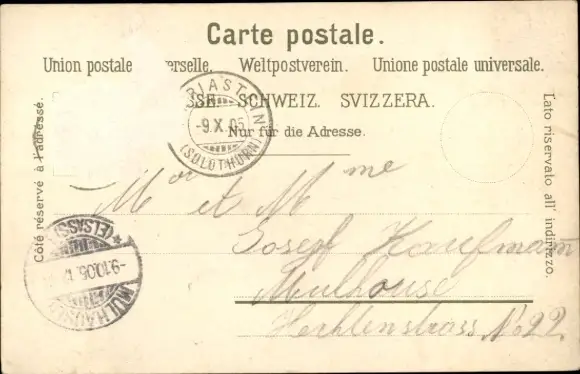 Carte postale.
Union postale universelle. Weltpostverein. Unione postale universale.
SSE. SCHWEIZ. SVIZZERA.
Nur für die Adresse.
Côté réservé à l'adresse.
Lato riservato all' indirizzo.
MARIASTEIN
-9.X.05
(SOLOTHURN)
Mr et Mme
Josef Kaufmann
Mulhouse
No 22.
MÜLHAUSEN
(ELSASS)